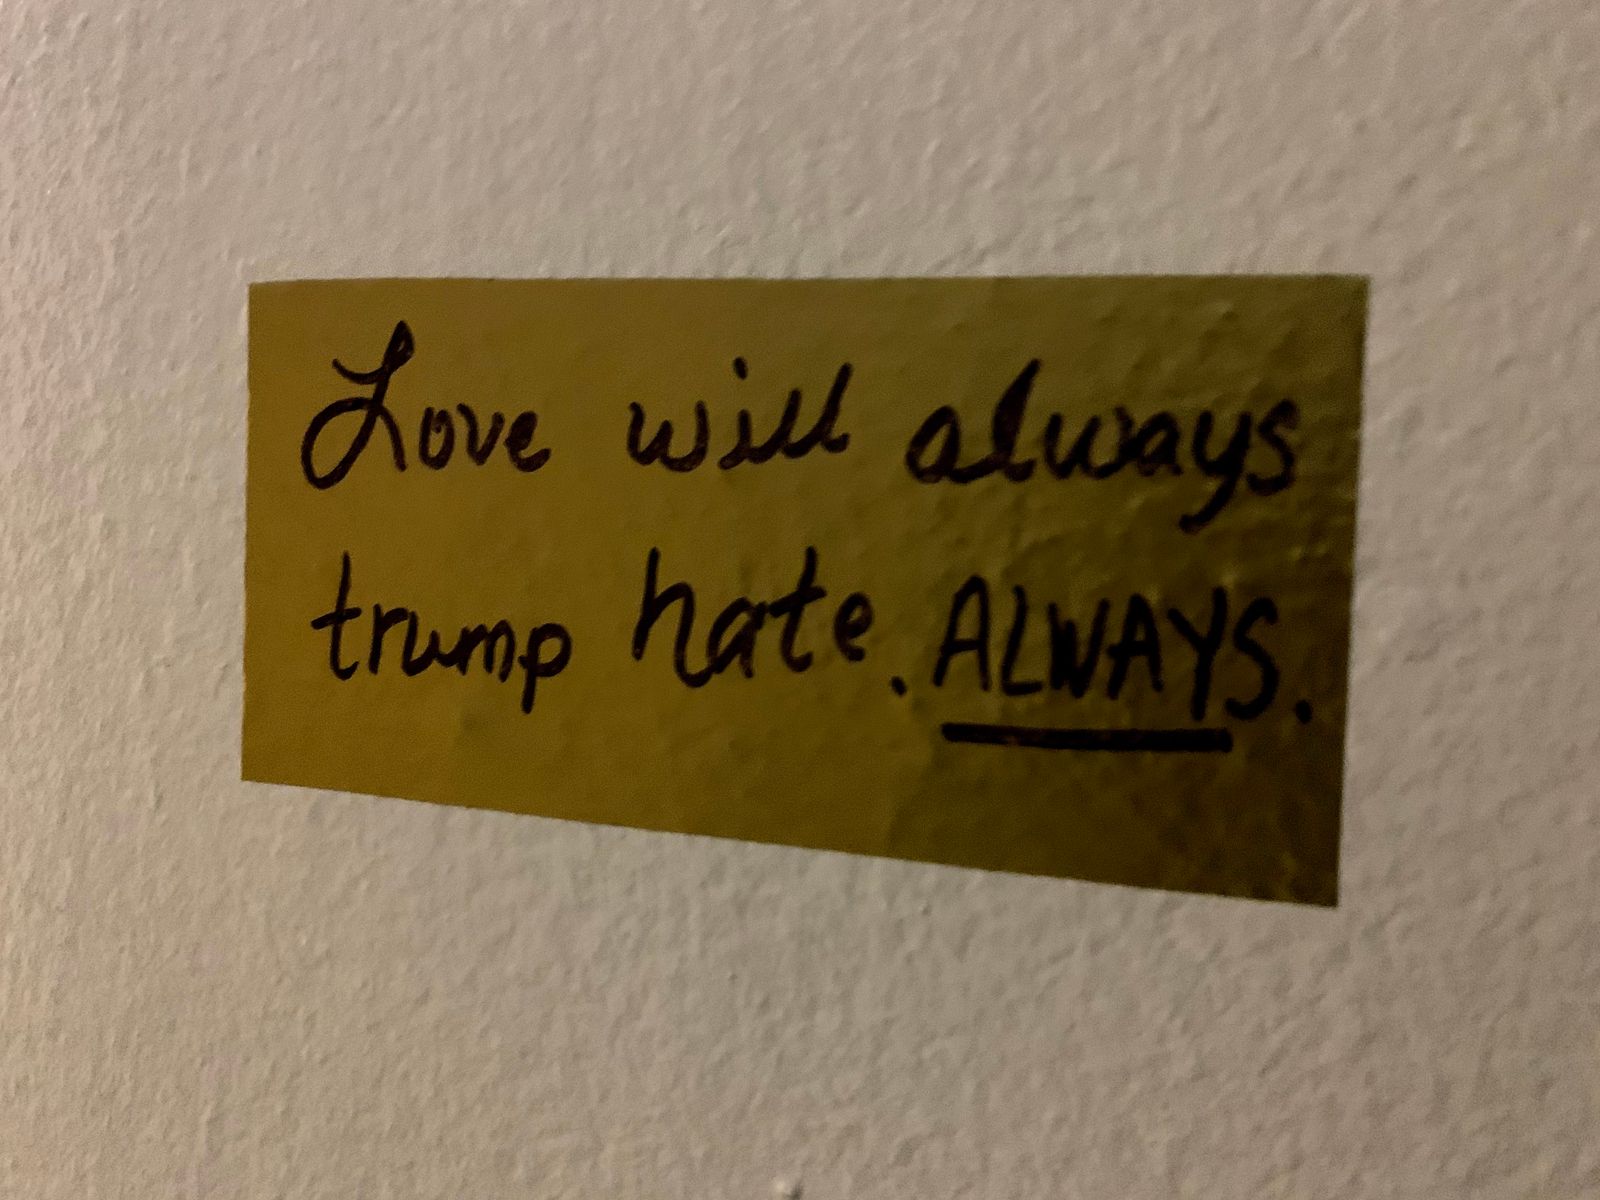 Love will always
trump hate. ALWAYS.